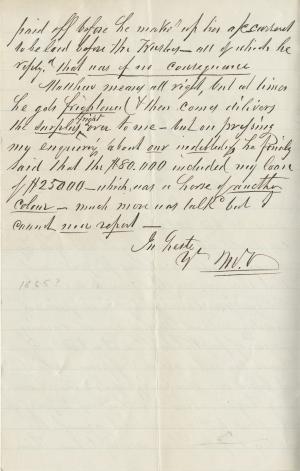 paid off before he makes up his a/c current
to be laid before the Trustees – all of which he
reply.d that was of no consequence
Matthew means all right, but at times
he gets frightened & then comes delivers
the surplus over to me – but on pressing
my enquiry about our indebtedness he
said that the $50.000 included my loan
of $25000 – which was a horse of another
colour – much more was talk but I
cannot now report –
In haste
Yrs M.O.V
1865?